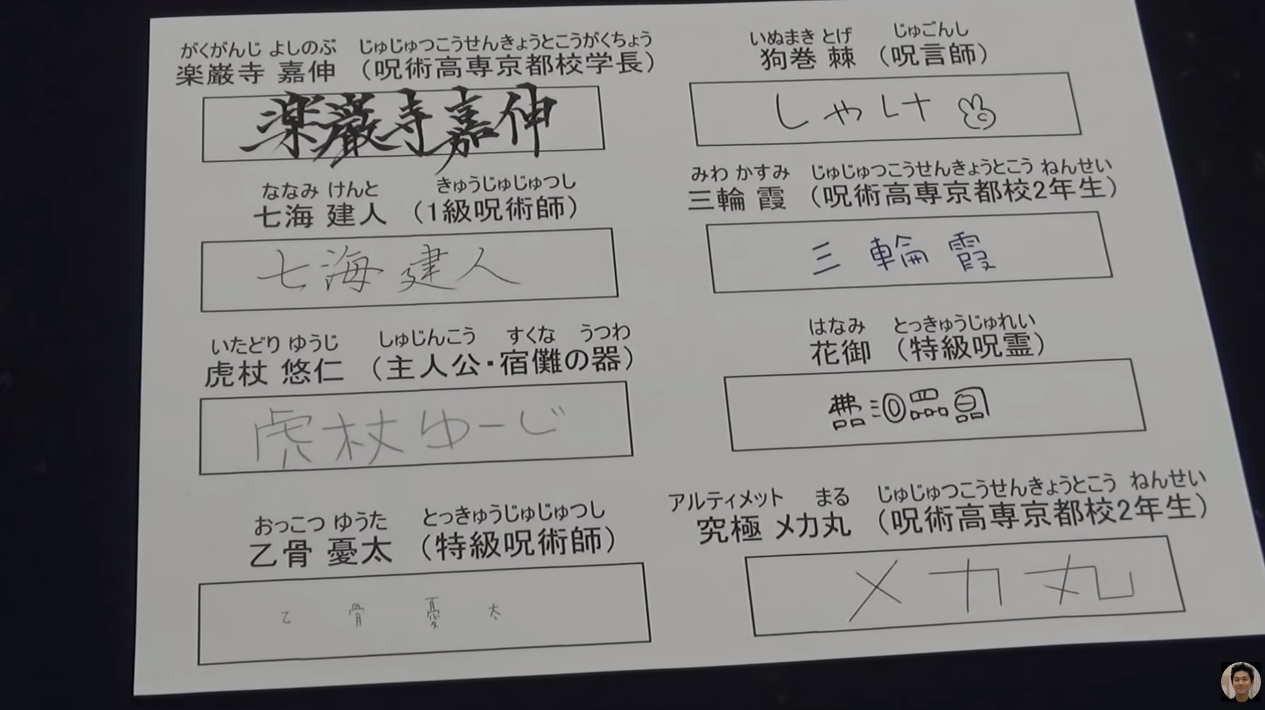 がくがんじ よしのぶ じゅじゅつこうせんきょうとこうがくちょう
楽巌寺 嘉伸 (呪術高専京都校学長)
楽巌寺嘉伸
ななみ けんと きゅうじゅじゅつし
七海 建人 (1級呪術師)
七海建人
いたどり ゆうじ しゅじんこう すくな うつわ
虎杖 悠仁 (主人公・宿儺の器)
虎杖ゆーじ
おっこつ ゆうた とっきゅうじゅじゅつし
乙骨 憂太 (特級呪術師)
乙骨憂太
いぬまき とげ じゅごんし
狗巻 棘 (呪言師)
しゃけ
みわ かすみ じゅじゅつこうせんきょうとこう ねんせい
三輪 霞 (呪術高専京都校2年生)
三輪霞
はなみ とっきゅうじゅれい
花御 (特級呪霊)
アルティメット まる じゅじゅつこうせんきょうとこう ねんせい
究極 メカ丸 (呪術高専京都校2年生)
メカ丸